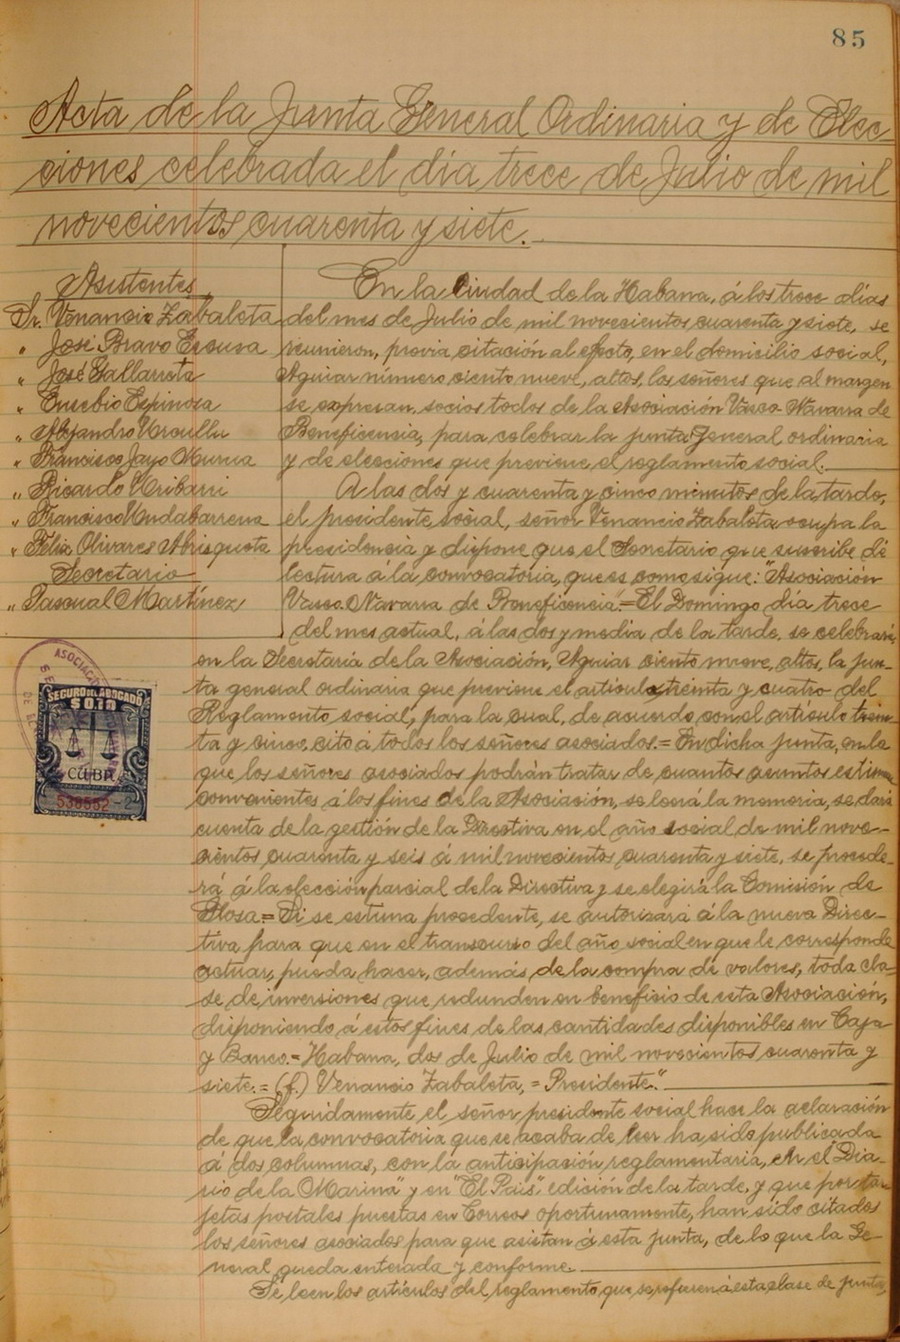 85
Acta de la Junta General Ordinaria y de Elec-
ciones celebrada el día trece de Julio de mil
novecientos cuarenta y siete.
Asistentes
Sr. Venancio Zabaleta
" José Bravo Escusa
" José Gallarreta
" Eusebio Espinosa
" Alejandro Urcullu
" Francisco Jayo Murua
" Ricardo Uribarri
" Francisco Undabarrena
" Félix Olivares Abrisqueta
Secretario
" Pascual Martínez
En la Ciudad de la Habana, á los trece días
del mes de Julio de mil novecientos cuarenta y siete, se
reunieron, previa citación al efecto, en el domicilio social,
Aguiar número ciento nueve, altos, los señores que al margen
se expresan, socios todos de la Asociación Vasco-Navarra de
Beneficencia, para celebrar la junta General ordinaria
y de elecciones que previene el reglamento social.
A las dos y cuarenta y cinco minutos de la tarde,
el presidente social, señor Venancio Zabaleta ocupa la
presidencia y dispone que el Secretario que suscribe dé
lectura á la convocatoria, que es como sigue: "Asociación
Vasco-Navarra de Beneficencia".= El Domingo día trece
del mes actual, á las dos y media de la tarde, se celebrará,
en la Secretaría de la Asociación, Aguiar ciento nueve, altos, la jun-
ta general ordinaria que previene el artículo treinta y cuatro del
Reglamento social, para la cual, de acuerdo con el artículo trein-
ta y cinco, cito á todos los señores asociados.= En dicha junta, en la
que los señores asociados podrán tratar de cuantos asuntos estimen
convenientes á los fines de la Asociación, se leerá la memoria, se dará
cuenta de la gestión de la Directiva en el año social de mil nove-
cientos cuarenta y seis á mil novecientos cuarenta y siete, se procede-
rá á la elección parcial de la Directiva y se elegirá la Comisión de
Glosa.= Si se estima procedente, se autorizará á la nueva Direc-
tiva para que en el transcurso del año social en que le corresponde
actuar, pueda hacer, además de la compra de valores, toda cla-
se de inversiones que redunden en beneficio de esta Asociación,
disponiendo á estos fines de las cantidades disponibles en Caja
y Banco.= Habana, dos de Julio de mil novecientos cuarenta y
siete.= (f.) Venancio Zabaleta,= Presidente."
Seguidamente, el señor presidente social hace la aclaración
de que la convocatoria que se acaba de leer ha sido publicada
á dos columnas, con la anticipación reglamentaria, en el "Dia-
rio de la Marina" y en "El País", edición de la tarde, y que por tar-
jetas postales puestas en Correos oportunamente, han sido citados
los señores asociados para que asistan á esta junta, de lo que la Ge-
neral queda enterada y conforme.
Se leen los artículos del reglamento que se refieren á esta clase de juntas,
SEGURO DEL ABOGADO
CUBA
538552